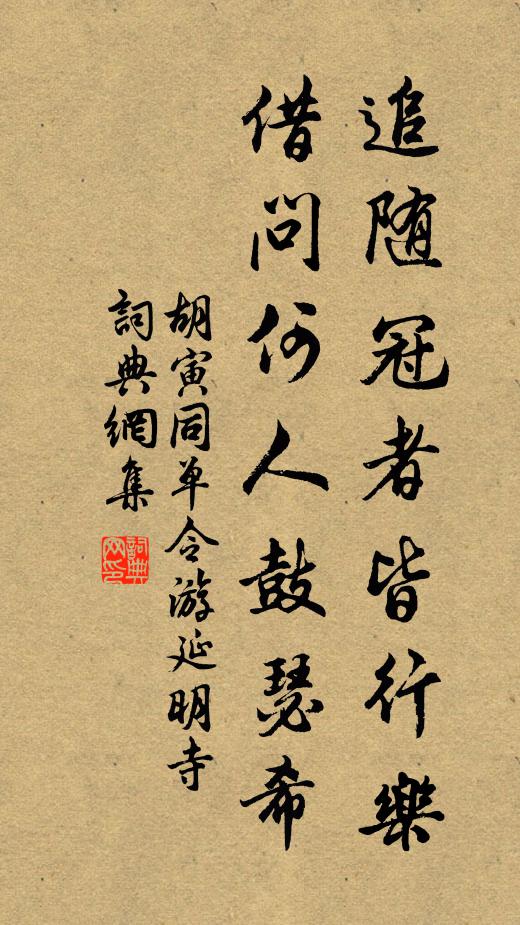 追随冠者皆行樂
借問何人鼓瑟希
胡寅同单令游延明寺
詞典網集
詞典网印